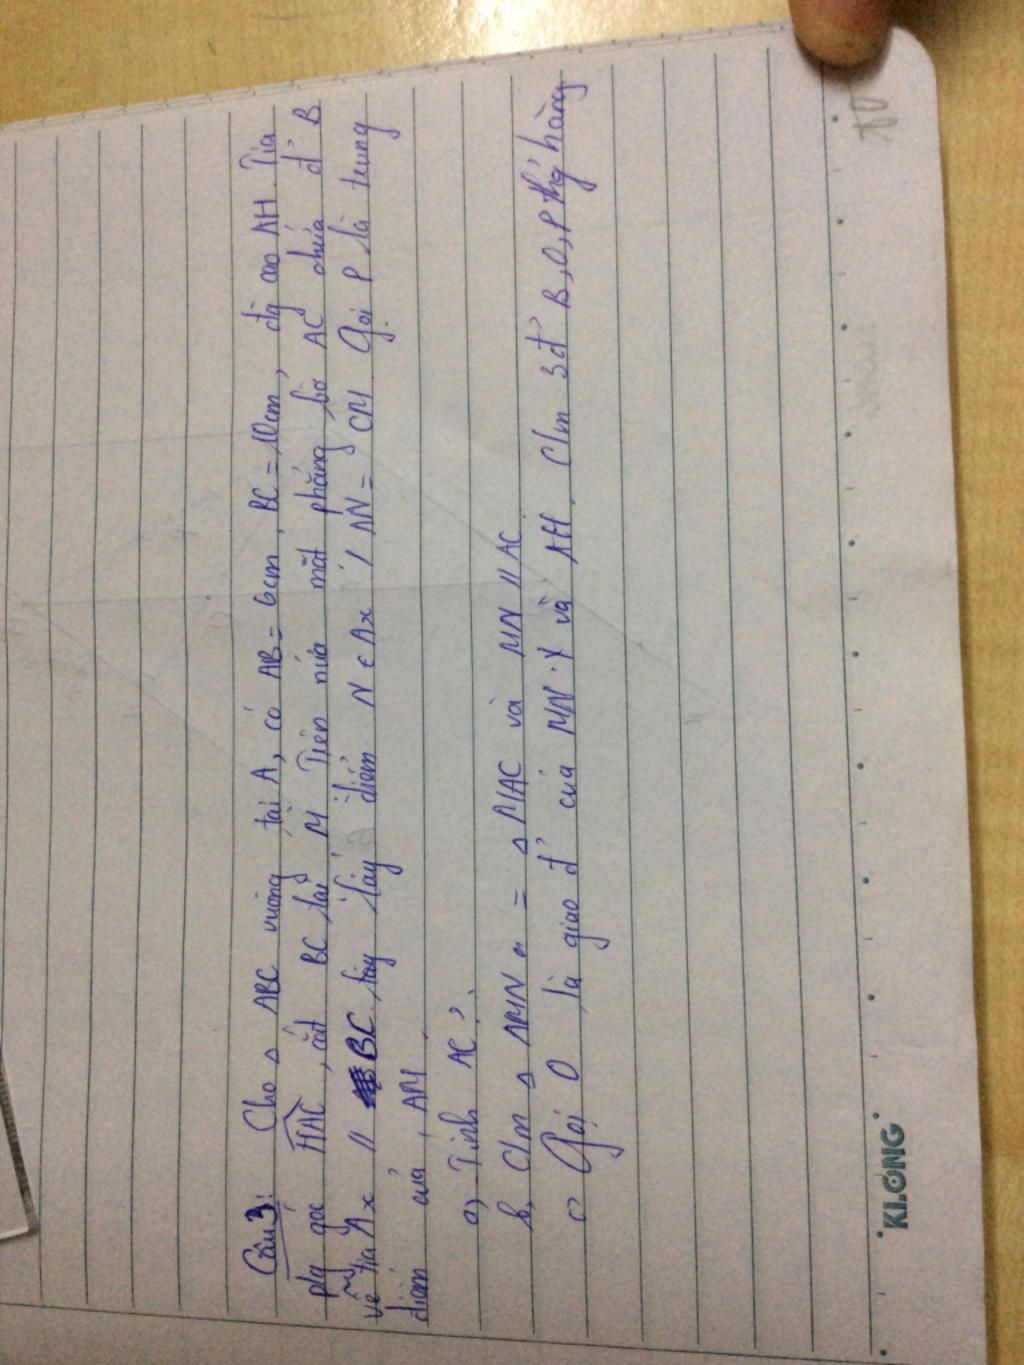 Câu 3: Cho △ ABC vuông tại A, có AB = 6cm, BC = 10cm, đg cao AH. Tia
p/g góc HAC, cắt BC tại M Trên nửa mặt phẳng bờ AC chứa đ' B
vẽ tia Ax // BC lấy lấy điểm N ∈ Ax / AN = CM Gọi P là trung
điểm của AM
a, Tính AC?
b, C/m △ AMN = △ MAC và MN // AC
c, Gọi O là giao đ' của MN và AH. C/m 3 đ' B, O, P thẳng hàng
KLONG